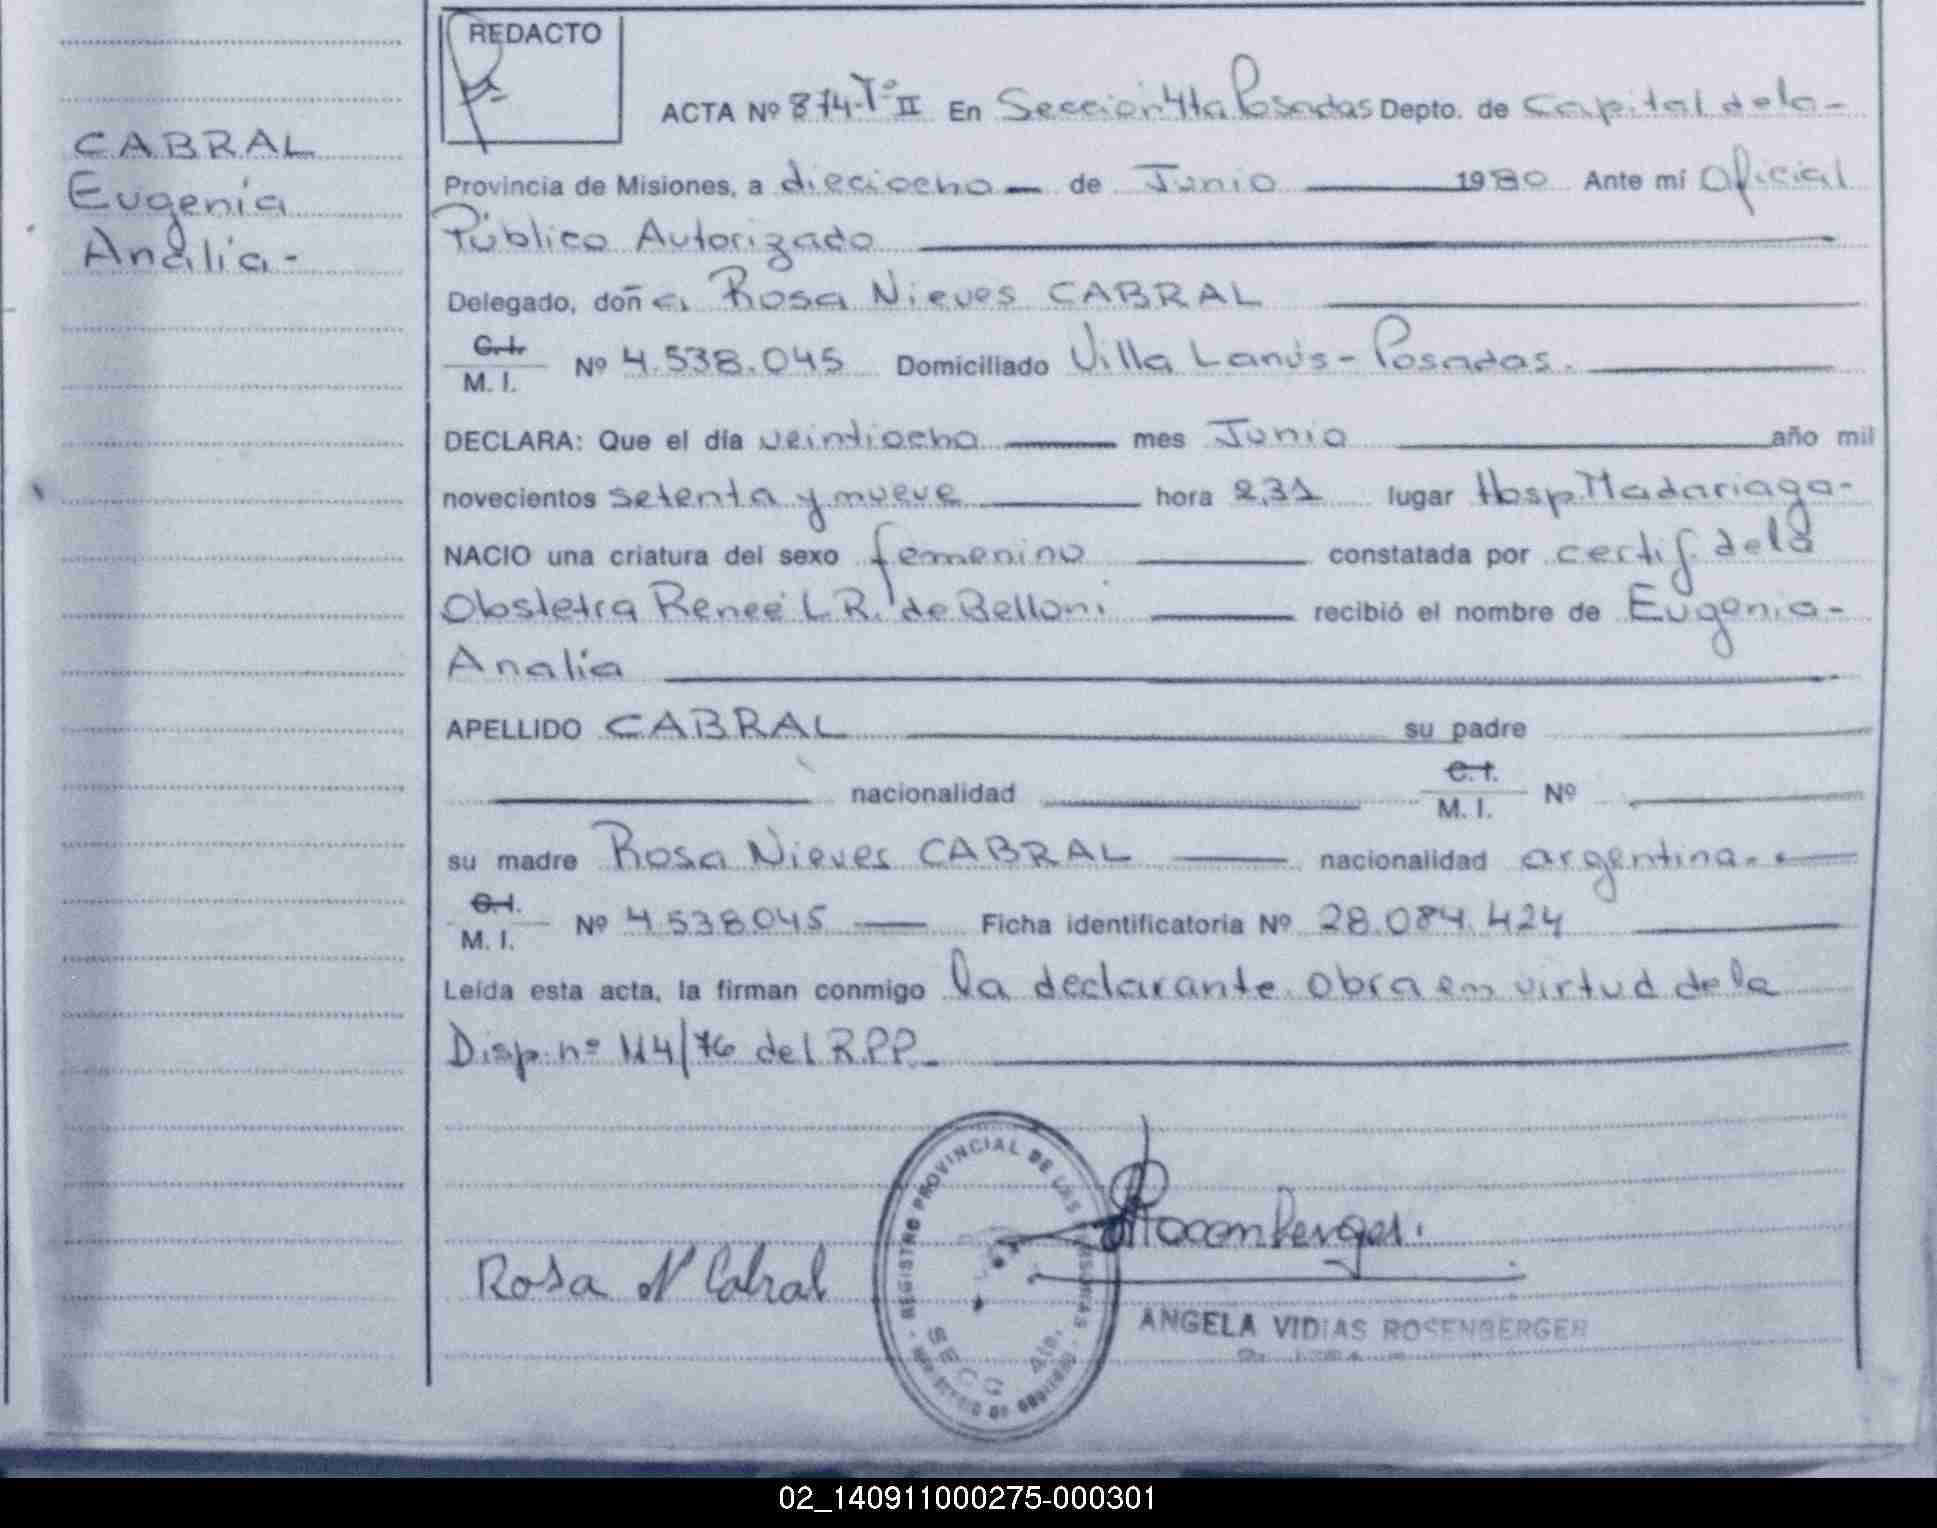 REDACTO
CABRAL
Eugenia
Analía -
ACTA Nº 874-Tº II En Sección 4ta Posadas Depto. de Capital de la -
Provincia de Misiones, a dieciocho de Junio 1980 Ante mí Oficial
Público Autorizado
Delegado, doña Rosa Nieves CABRAL
C.I.
M. I. Nº 4.538.045 Domiciliado Villa Lanús - Posadas.
DECLARA: Que el día veintiocho mes Junio año mil
novecientos setenta y nueve hora 2,31 lugar Hosp. Madariaga -
NACIO una criatura del sexo femenino constatada por certif. de la
Obstetra Reneé L.R. de Belloni recibió el nombre de Eugenia -
Analía
APELLIDO CABRAL su padre
nacionalidad C.I. M. I. Nº
su madre Rosa Nieves CABRAL nacionalidad argentina. -
C.I.
M. I. Nº 4.538.045 Ficha identificatoria Nº 28.084.424
Leída esta acta, la firman conmigo la declarante. Obra en virtud de la
Disp. nº 114/76 del R.P.P.
REGISTRO PROVINCIAL DE LAS PERSONAS
SECC 4ta.
Rosa N Cabral
Rosenberger.
ANGELA VIDIAS ROSENBERGER
02_140911000275-000301